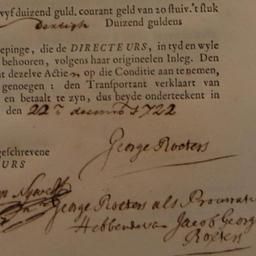 vyf duizend guld. courant geld van 20 stuiv. 't stuk
Dertigh Duizend guldens
epinge, die de DIRECTEURS, in tyd en wyle
behooren, volgens haar origineelen Inleg. Den
t dezelve Actien op die Conditie aan te nemen,
genoegen: den Transportant verklaart van
en betaalt te zyn, dus beyde onderteekent in
den 22en decemb 1722
George Roeters
geschrevene
URS
George Roeters als Procuratie
Hebbende van Jacob George
Roeters